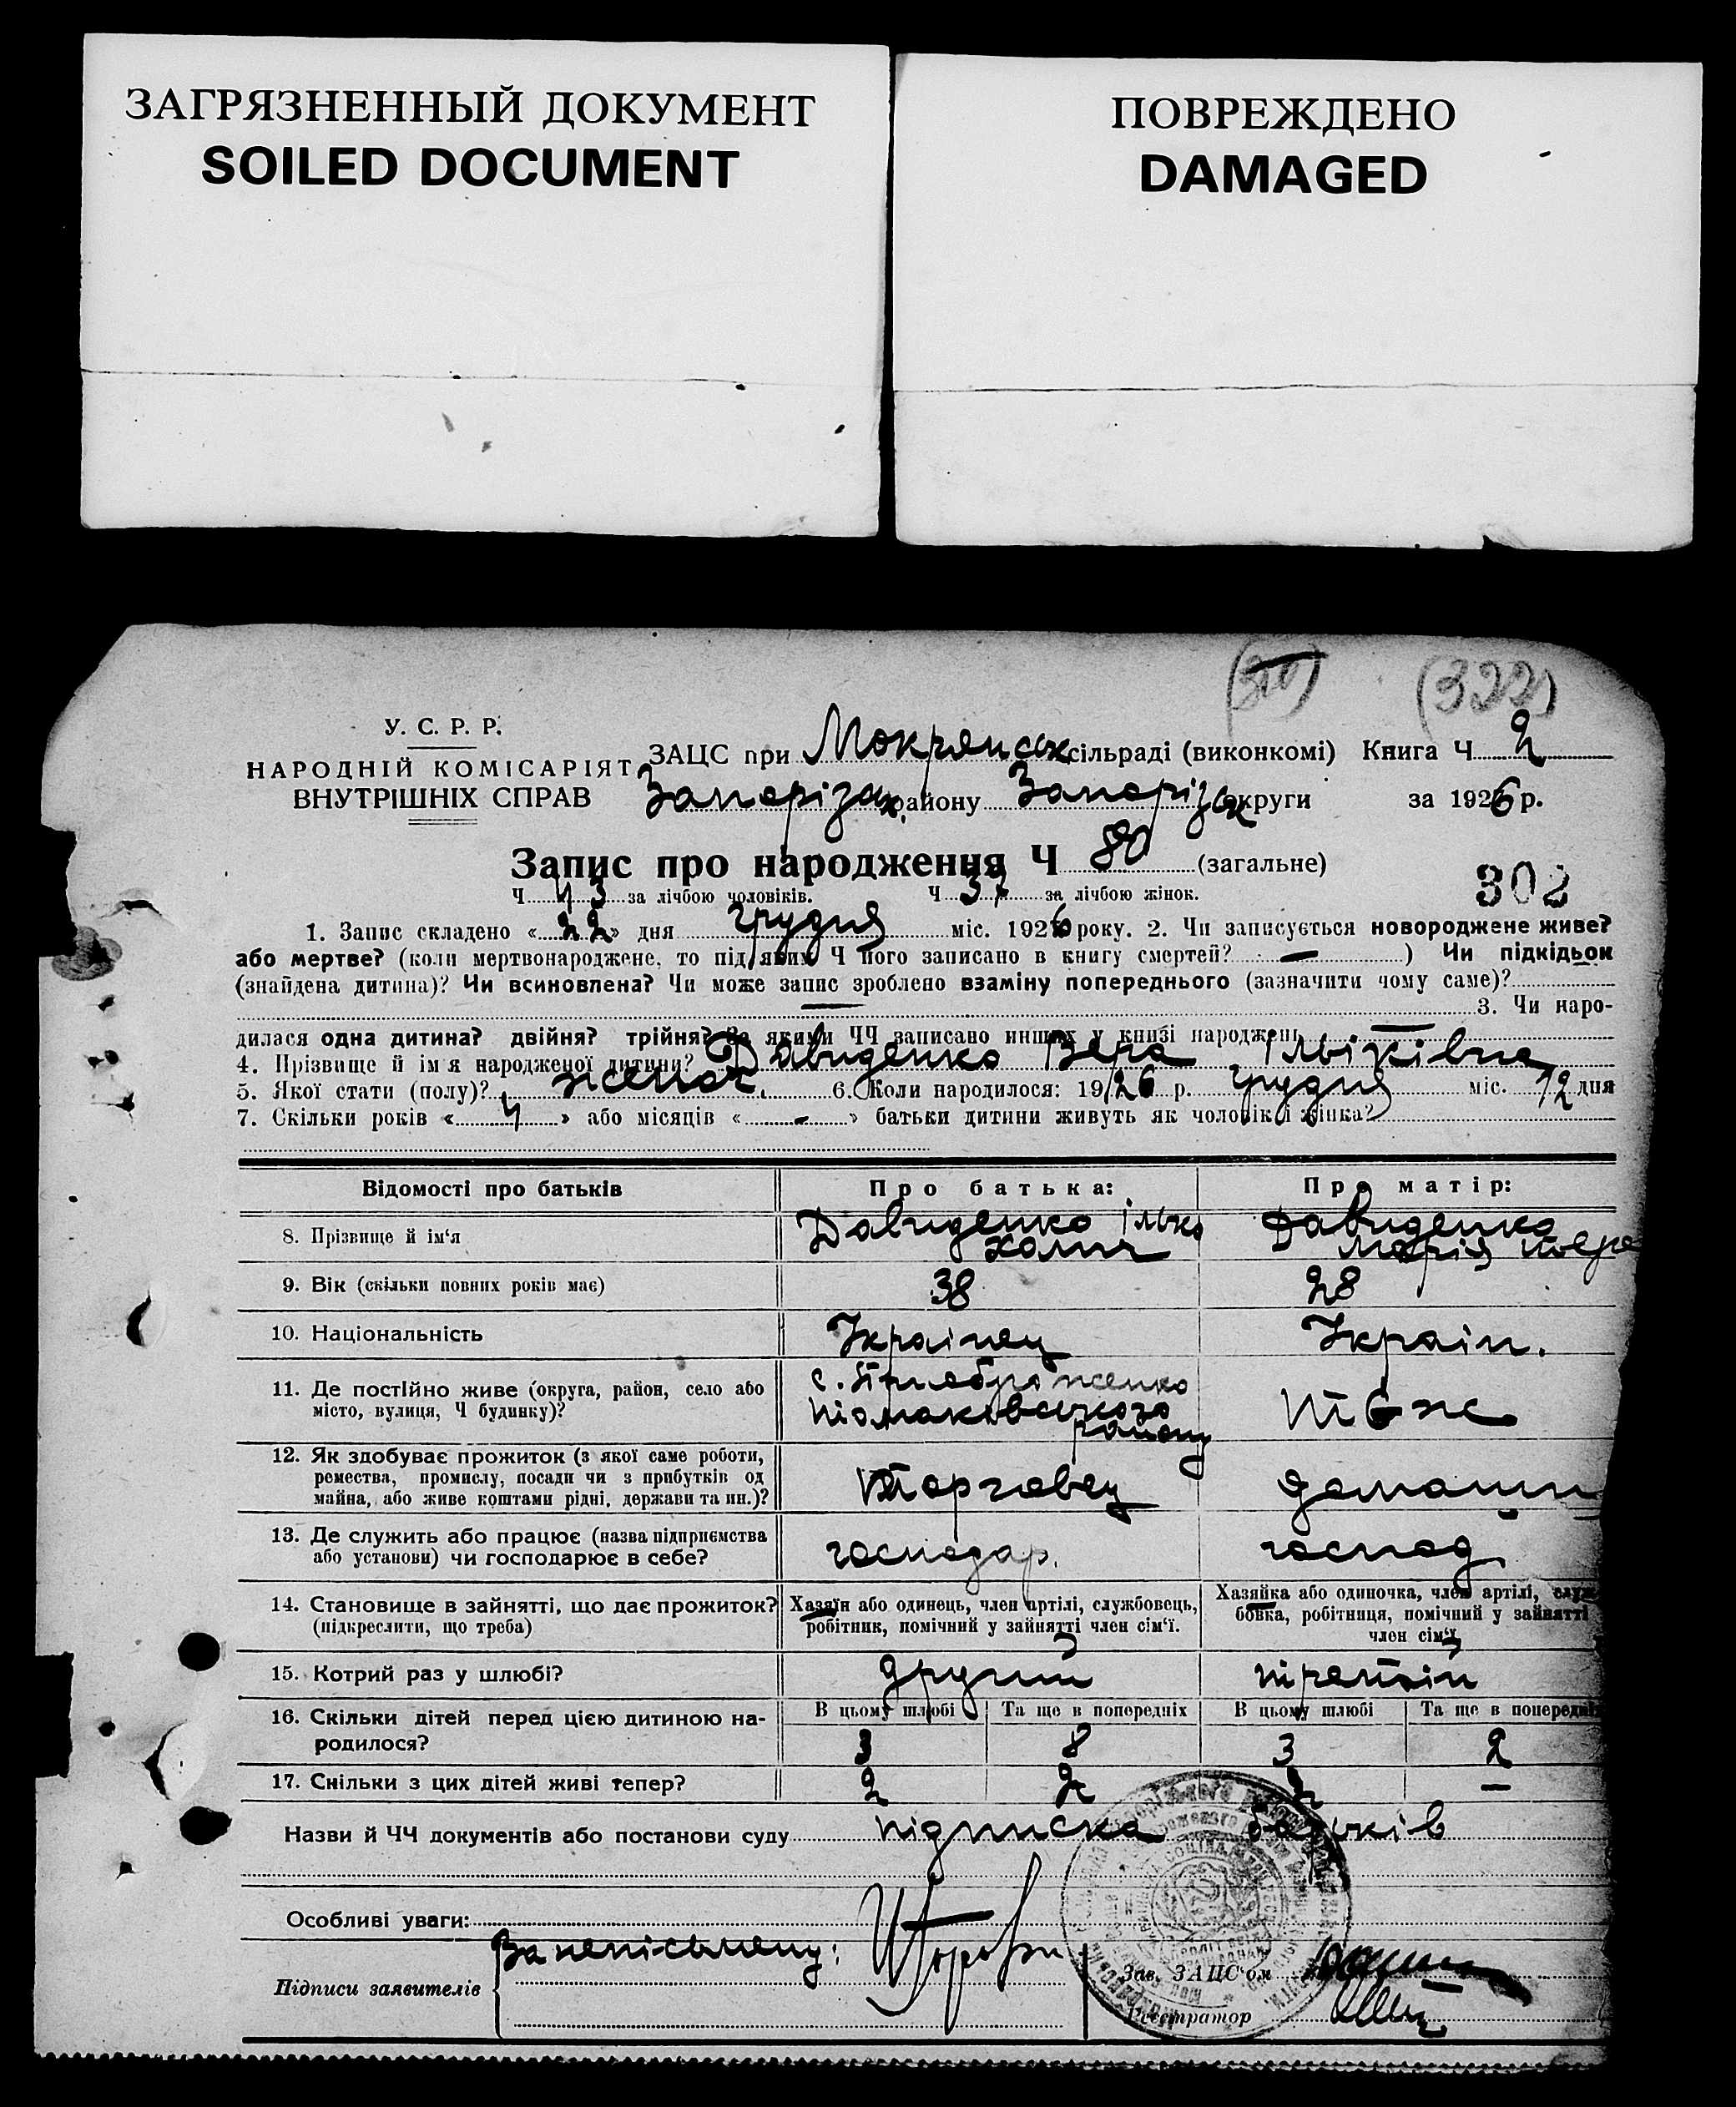 ЗАГРЯЗНЕННЫЙ ДОКУМЕНТ
SOILED DOCUMENT
ПОВРЕЖДЕНО
DAMAGED
(322)
У. С. Р. Р.
НАРОДНІЙ КОМІСАРІЯТ
ВНУТРІШНІХ СПРАВ
ЗАЦС при Мокрянськ сільраді (виконкомі) Книга Ч 2
Запорізьк. району Запорізьк округи за 1926 р.
Запис про народження Ч 80 (загальне)
Ч 43 за лічбою чоловіків. Ч 37 за лічбою жінок.
302
1. Запис складено «22» дня грудня міс. 1926 року. 2. Чи записується новороджене живе?
або мертве? (коли мертвонароджене, то під яким Ч його записано в книгу смертей? —) Чи підкідьок
(знайдена дитина)? Чи всиновлена? Чи може запис зроблено взаміну попереднього (зазначити чому саме)?
— 3. Чи наро-
дилася одна дитина? двійня? трійня? За якими ЧЧ записано инших у книзі народжень —
4. Прізвище й ім'я народженої дитини? Давиденко Вера Ільківна
5. Якої стати (полу)? женоч. 6. Коли народилося: 1926 р. грудня міс. 12 дня
7. Скільки років «4» або місяців «-» батьки дитини живуть як чоловік і жінка?
Відомості про батьків Про батька: Про матір:
8. Прізвище й ім'я Давиденко Ілько Давиденко
Марія
9. Вік (скільки повних років має) 38 28
10. Національність Українец Україн.
11. Де постійно живе (округа, район, село або
місто, вулиця, Ч будинку)?
с.
району
тож
12. Як здобуває прожиток (з якої саме роботи,
ремества, промислу, посади чи з прибутків од
майна, або живе коштами рідні, держави та ин.)?
Торговец домашн
13. Де служить або працює (назва підприємства
або установи) чи господарює в себе?
господар. господ
14. Становище в зайнятті, що дає прожиток?
(підкреслити, що треба)
Хазяїн або одинець, член артілі, службовець,
робітник, помічний у зайнятті член сім'ї.
Хазяйка або одиночка, член артілі, служ
бовка, робітниця, помічний у зайнятті
член сім'ї
15. Котрий раз у шлюбі? другий третій
16. Скільки дітей перед цією дитиною на-
родилося?
В цьому шлюбі Та ще в попередніх В цьому шлюбі Та ще в попередні
3 8 3 2
17. Скільки з цих дітей живі тепер? 2 2 2 —
Назви й ЧЧ документів або постанови суду підписка батьків
Особливі уваги: —
Підписи заявителів
За непісьмену:
Зав. ЗАЦС'ом
Реєстратор